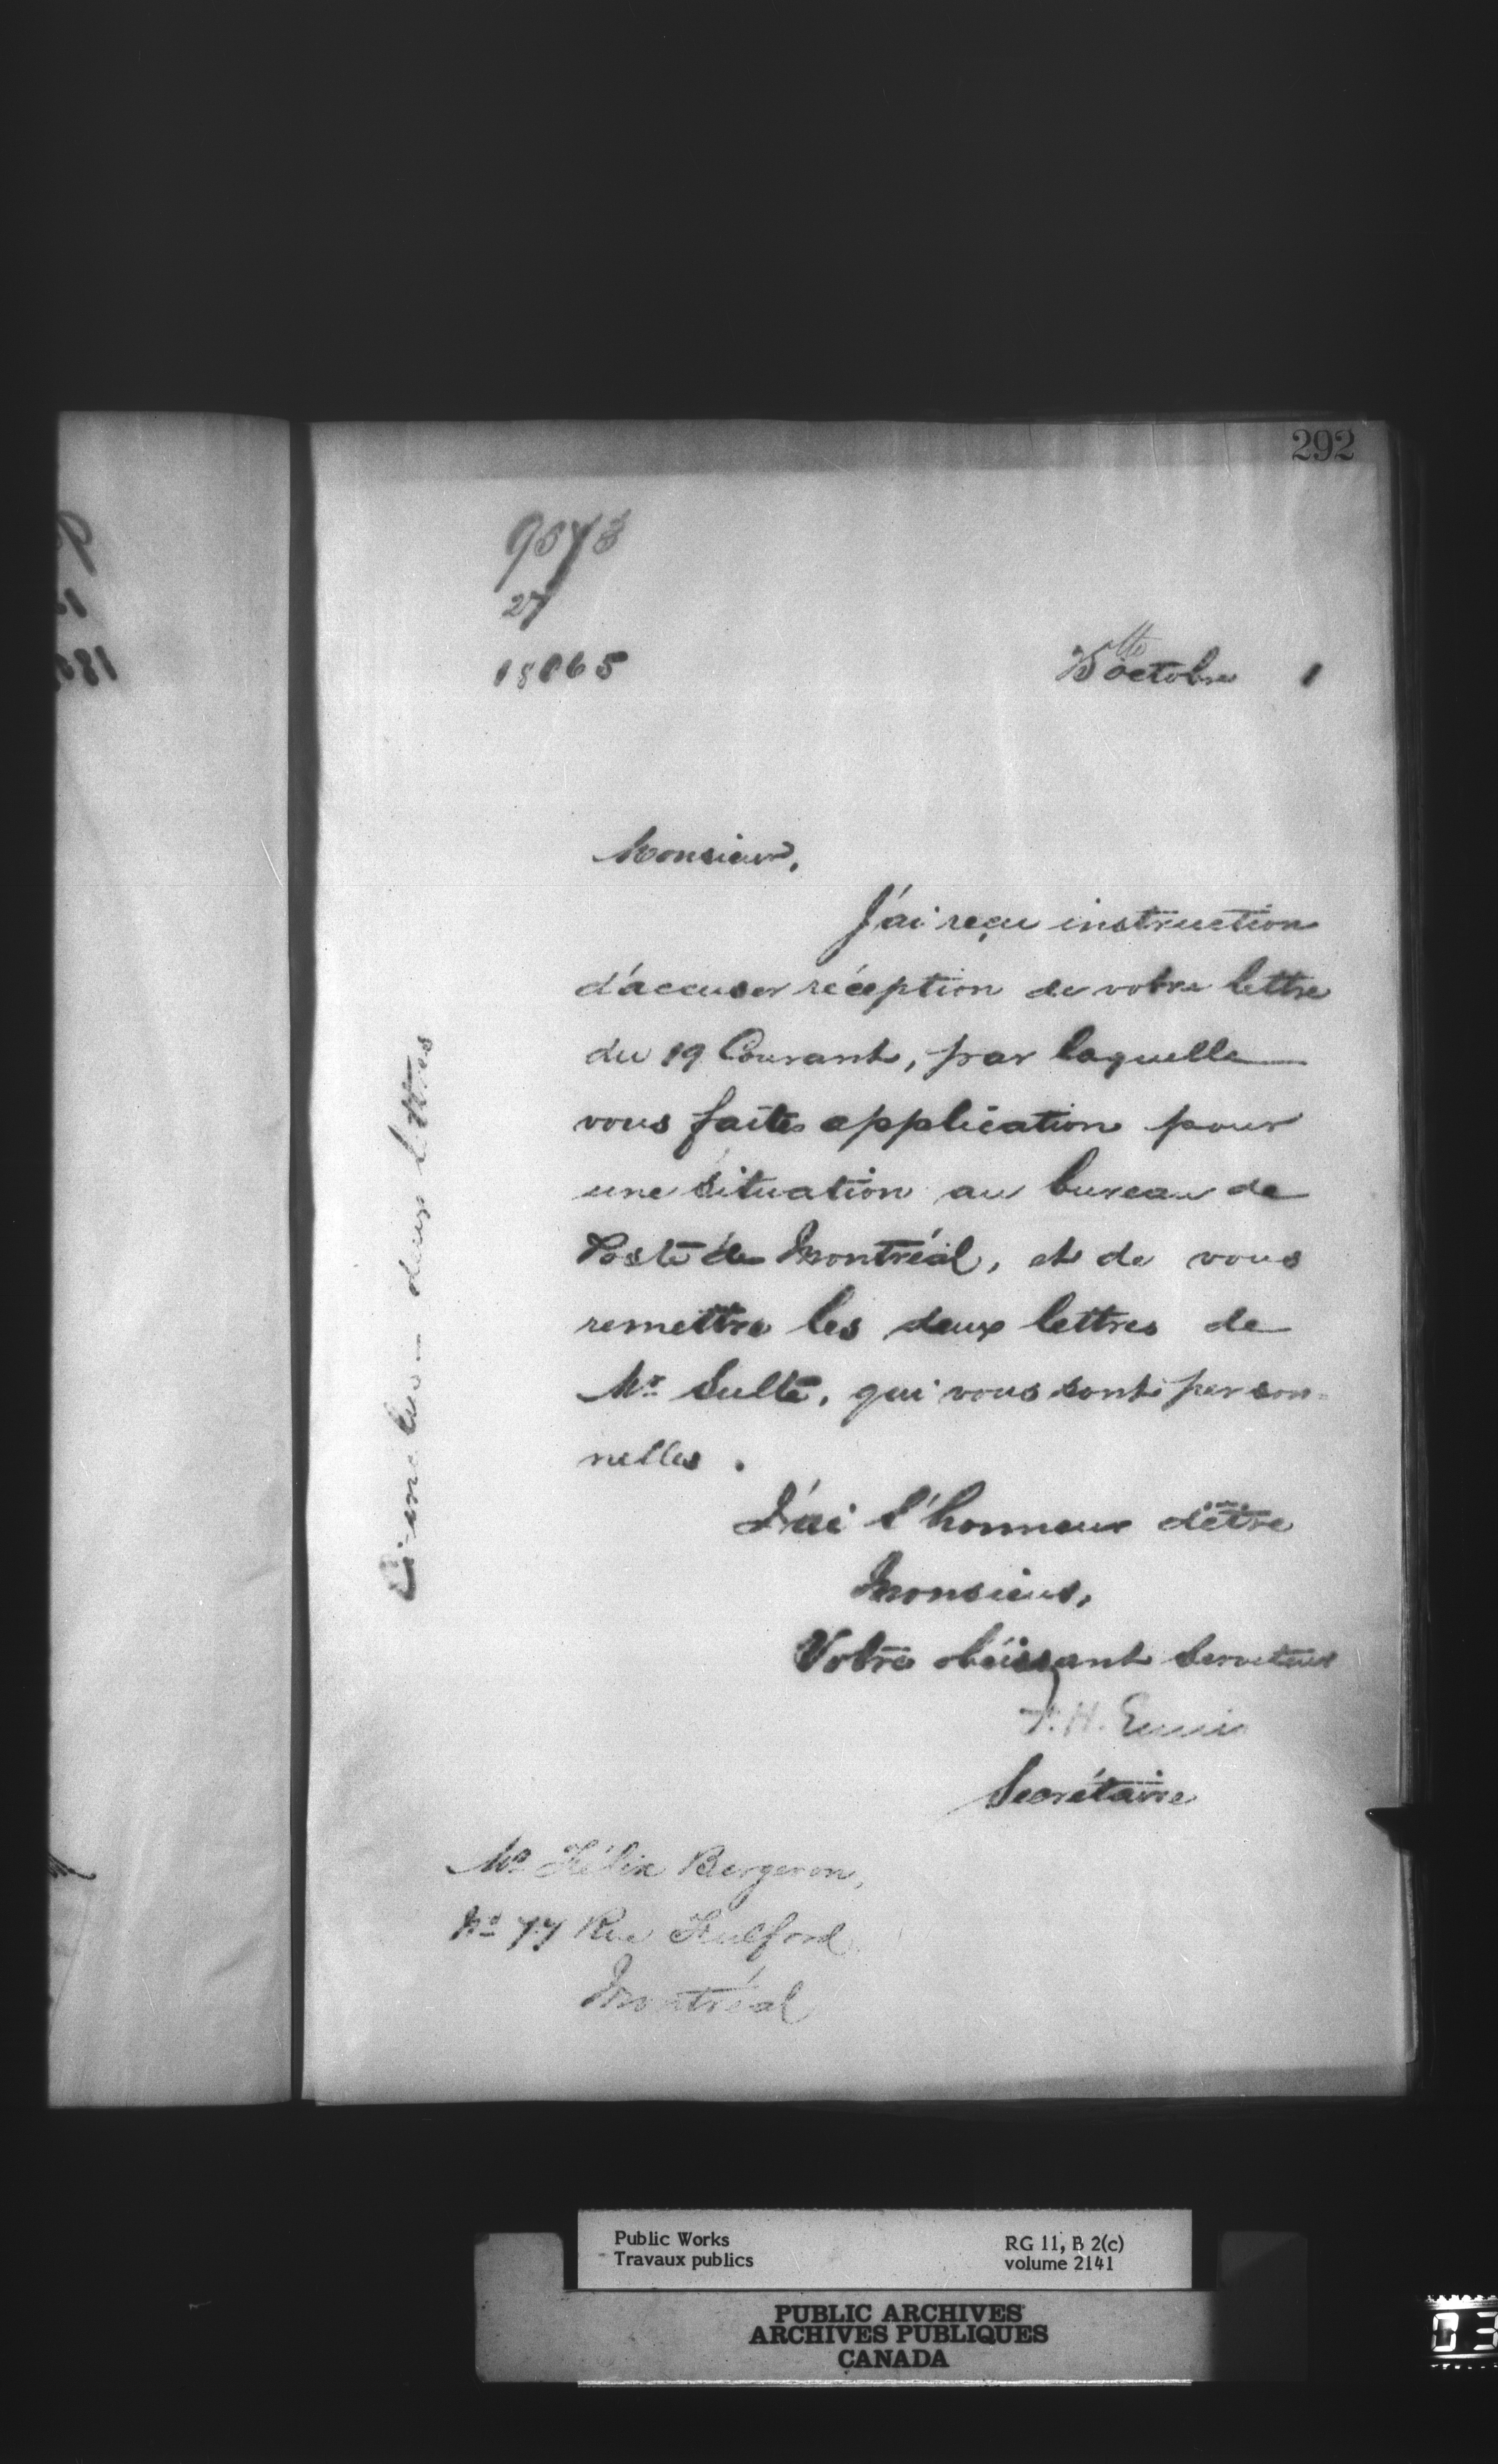 292
9573
27
18865
25 octobre 1
Monsieur,
J'ai reçu instruction
d'accuser réception de votre lettre
du 19 Courant, par laquelle
vous faites application pour
une situation au bureau de
Poste de Montréal, et de vous
remettre les deux lettres de
Mr Sulte, qui vous sont person-
nelles.
J'ai l'honneur d'être
Monsieur,
Votre obéissant Serviteur
F. H. Ennis
Secrétaire
Mr Félix Bergeron,
No 77 Rue Fulford
Montréal
deux lettres
Public Works
Travaux publics
RG 11, B 2(c)
volume 2141
PUBLIC ARCHIVES
ARCHIVES PUBLIQUES
CANADA
03